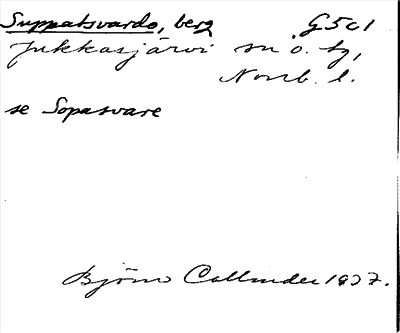 Suppatsvardo, berg G5c1
Jukkasjärvi sn o. tg,
Norrb. l.
se Sopasvare
Björn Collinder 1937.